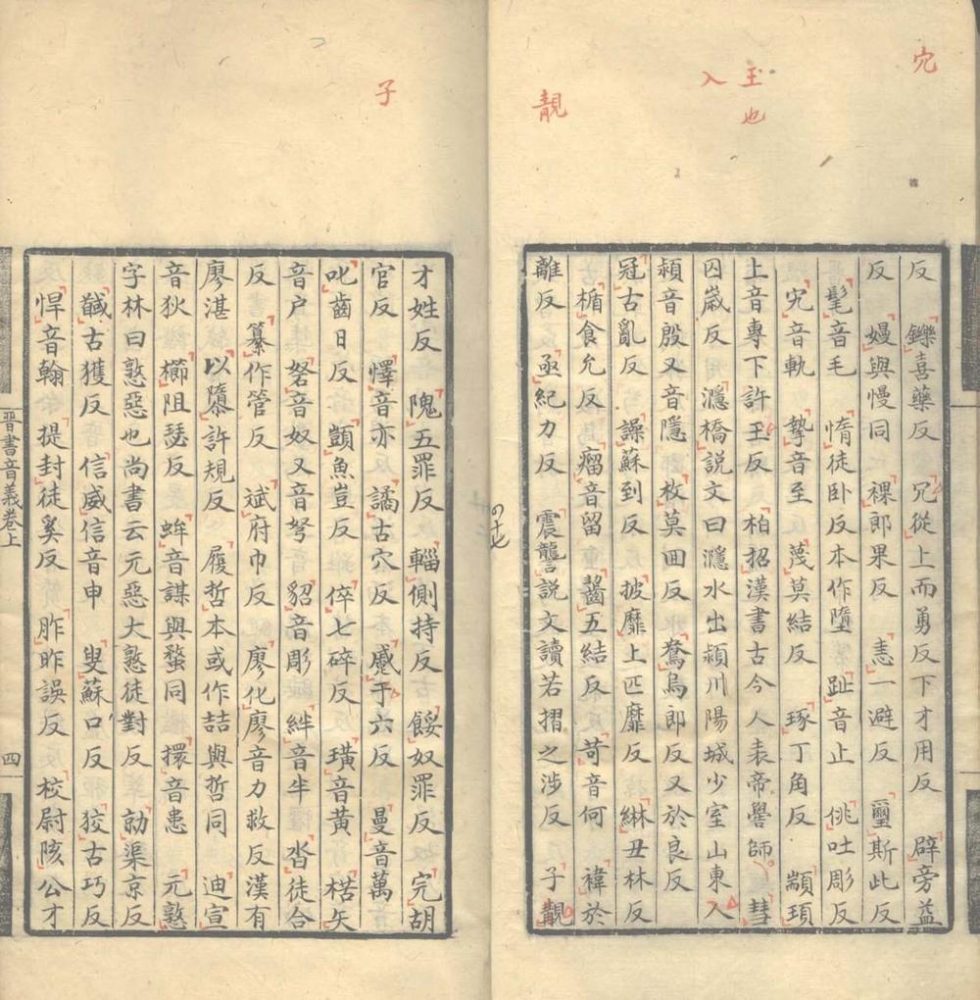 宄
玉
也
入
靚
反 鑠喜藥反 冗從上而勇反下才用反 辟旁益
反 嫚與慢同 裸郎果反 恚一避反 璽斯此反
髦音毛 惰徒卧反本作墮 趾音止 佻吐彫反
宄音軌 摯音至 蔑莫結反 琢丁角反 顓頊
上音專下許玉反 柏招漢書古今人表帝嚳師 彗
囚歲反 濦橋說文曰濦水出潁川陽城少室山東入
潁音殷又音隱 枚莫回反 鴦烏郎反又於良反
冠古亂反 譟蘇到反 披靡上匹靡反 綝丑林反
楯食允反 瘤音留 齧五結反 苛音何 褘於
離反 亟紀力反 震讋說文讀若摺之涉反 子靚
子
才姓反 隗五罪反 輜側持反 餒奴罪反 完胡
官反 懌音亦 譎古穴反 蹙于六反 曼音萬
叱齒日反 顗魚豈反 倅七碎反 璜音黃 楛矢
音户 砮音奴又音弩 貂音彫 絆音半 沓徒合
反 纂作管反 斌府巾反 廖化廖音力救反漢有
廖湛 以隳許規反 履哲本或作喆與哲同 迪宣
音狄 櫛阻瑟反 蛑音謀與蝥同 擐音患 元憝
字林曰憝惡也尚書云元惡大憝徒對反 勍渠京反
馘古獲反 信威信音申 叟蘇口反 狡古巧反
悍音翰 提封徒奚反 胙昨誤反 校尉陔公才
晉書音義卷上
四